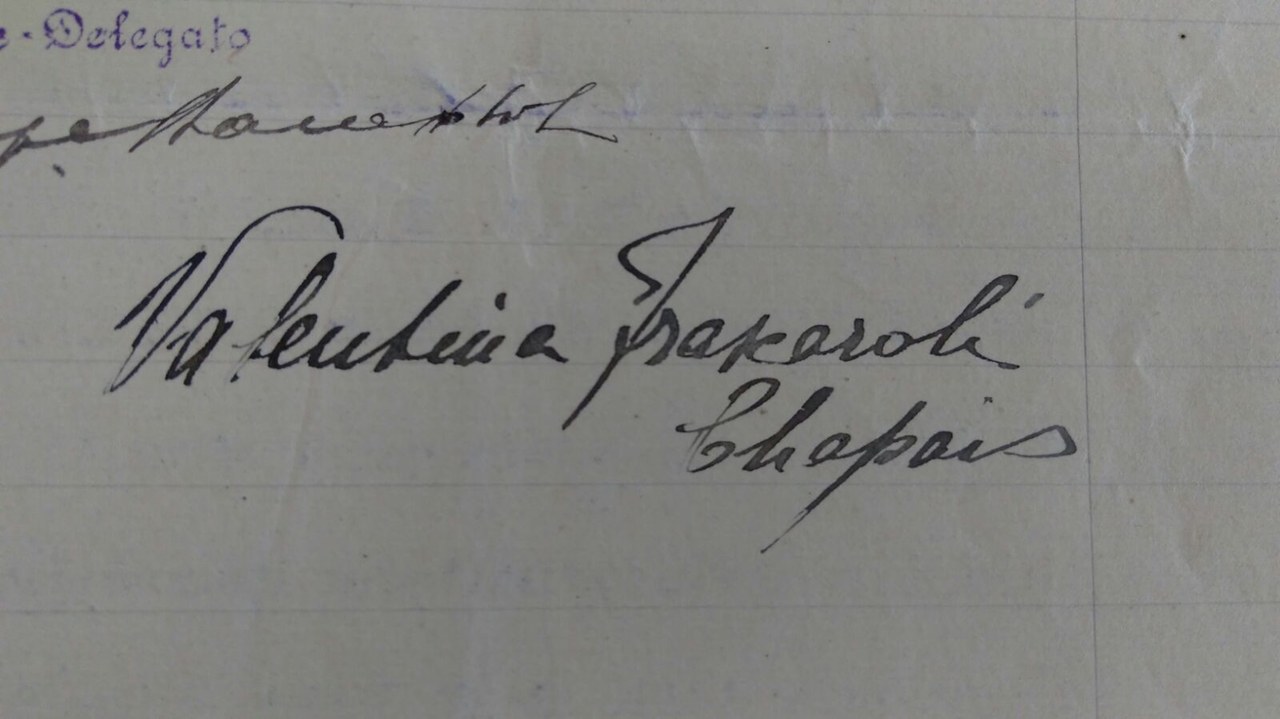 e-Delegato
Valentina Frakaroli
Chapais